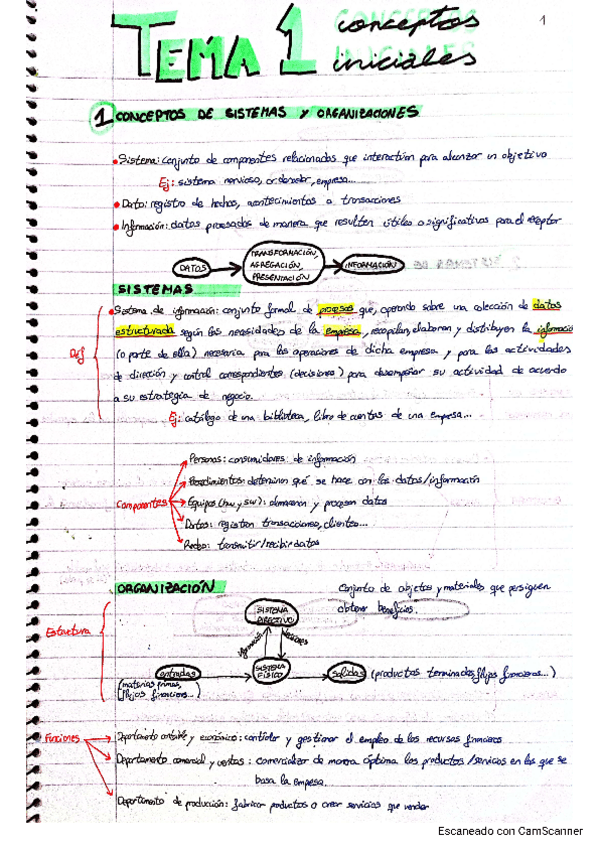 1
TEMA 1 conceptos
iniciales
1 CONCEPTOS DE SISTEMAS Y ORGANIZACIONES
• Sistema: conjunto de componentes relacionados que interactúan para alcanzar un objetivo
Ej: sistema nervioso, ordenador, empresa...
• Dato: registro de hechos, acontecimientos o transacciones
• Información: datos procesados de manera que resulten útiles o significativos para el receptor
DATOS
TRANSFORMACIÓN,
AGREGACIÓN,
PRESENTACIÓN
INFORMACIÓN
SISTEMAS
Def
• Sistema de información: conjunto formal de procesos que, operando sobre una colección de datos
estructurada según las necesidades de la empresa, recopilan, elaboran y distribuyen la información
(o parte de ella) necesaria para las operaciones de dicha empresa y para las actividades
de dirección y control correspondientes (decisiones) para desempeñar su actividad de acuerdo
a su estrategia de negocio.
Ej: catálogo de una biblioteca, libro de cuentas de una empresa...
Componentes
Personas: consumidores de información
Procedimientos: determinan qué se hace con los datos/información
Equipos (hw y sw): almacenan y procesan datos
Datos: registran transacciones, clientes...
Redes: transmitir/recibir datos
ORGANIZACIÓN
Conjunto de objetos y materiales que persiguen
obtener beneficios.
Estructura
SISTEMA
DIRECTIVO
información
decisiones
entradas
SISTEMA
FÍSICO
salidas (productos terminados, flujos financieros...)
(materias primas,
flujos financieros...)
Funciones
Departamento contable y económico: controlar y gestionar el empleo de los recursos financieros
Departamento comercial y ventas: comercializar de manera óptima los productos/servicios en los que se
basa la empresa.
Departamento de producción: fabricar productos o crear servicios que vender
Escaneado con CamScanner